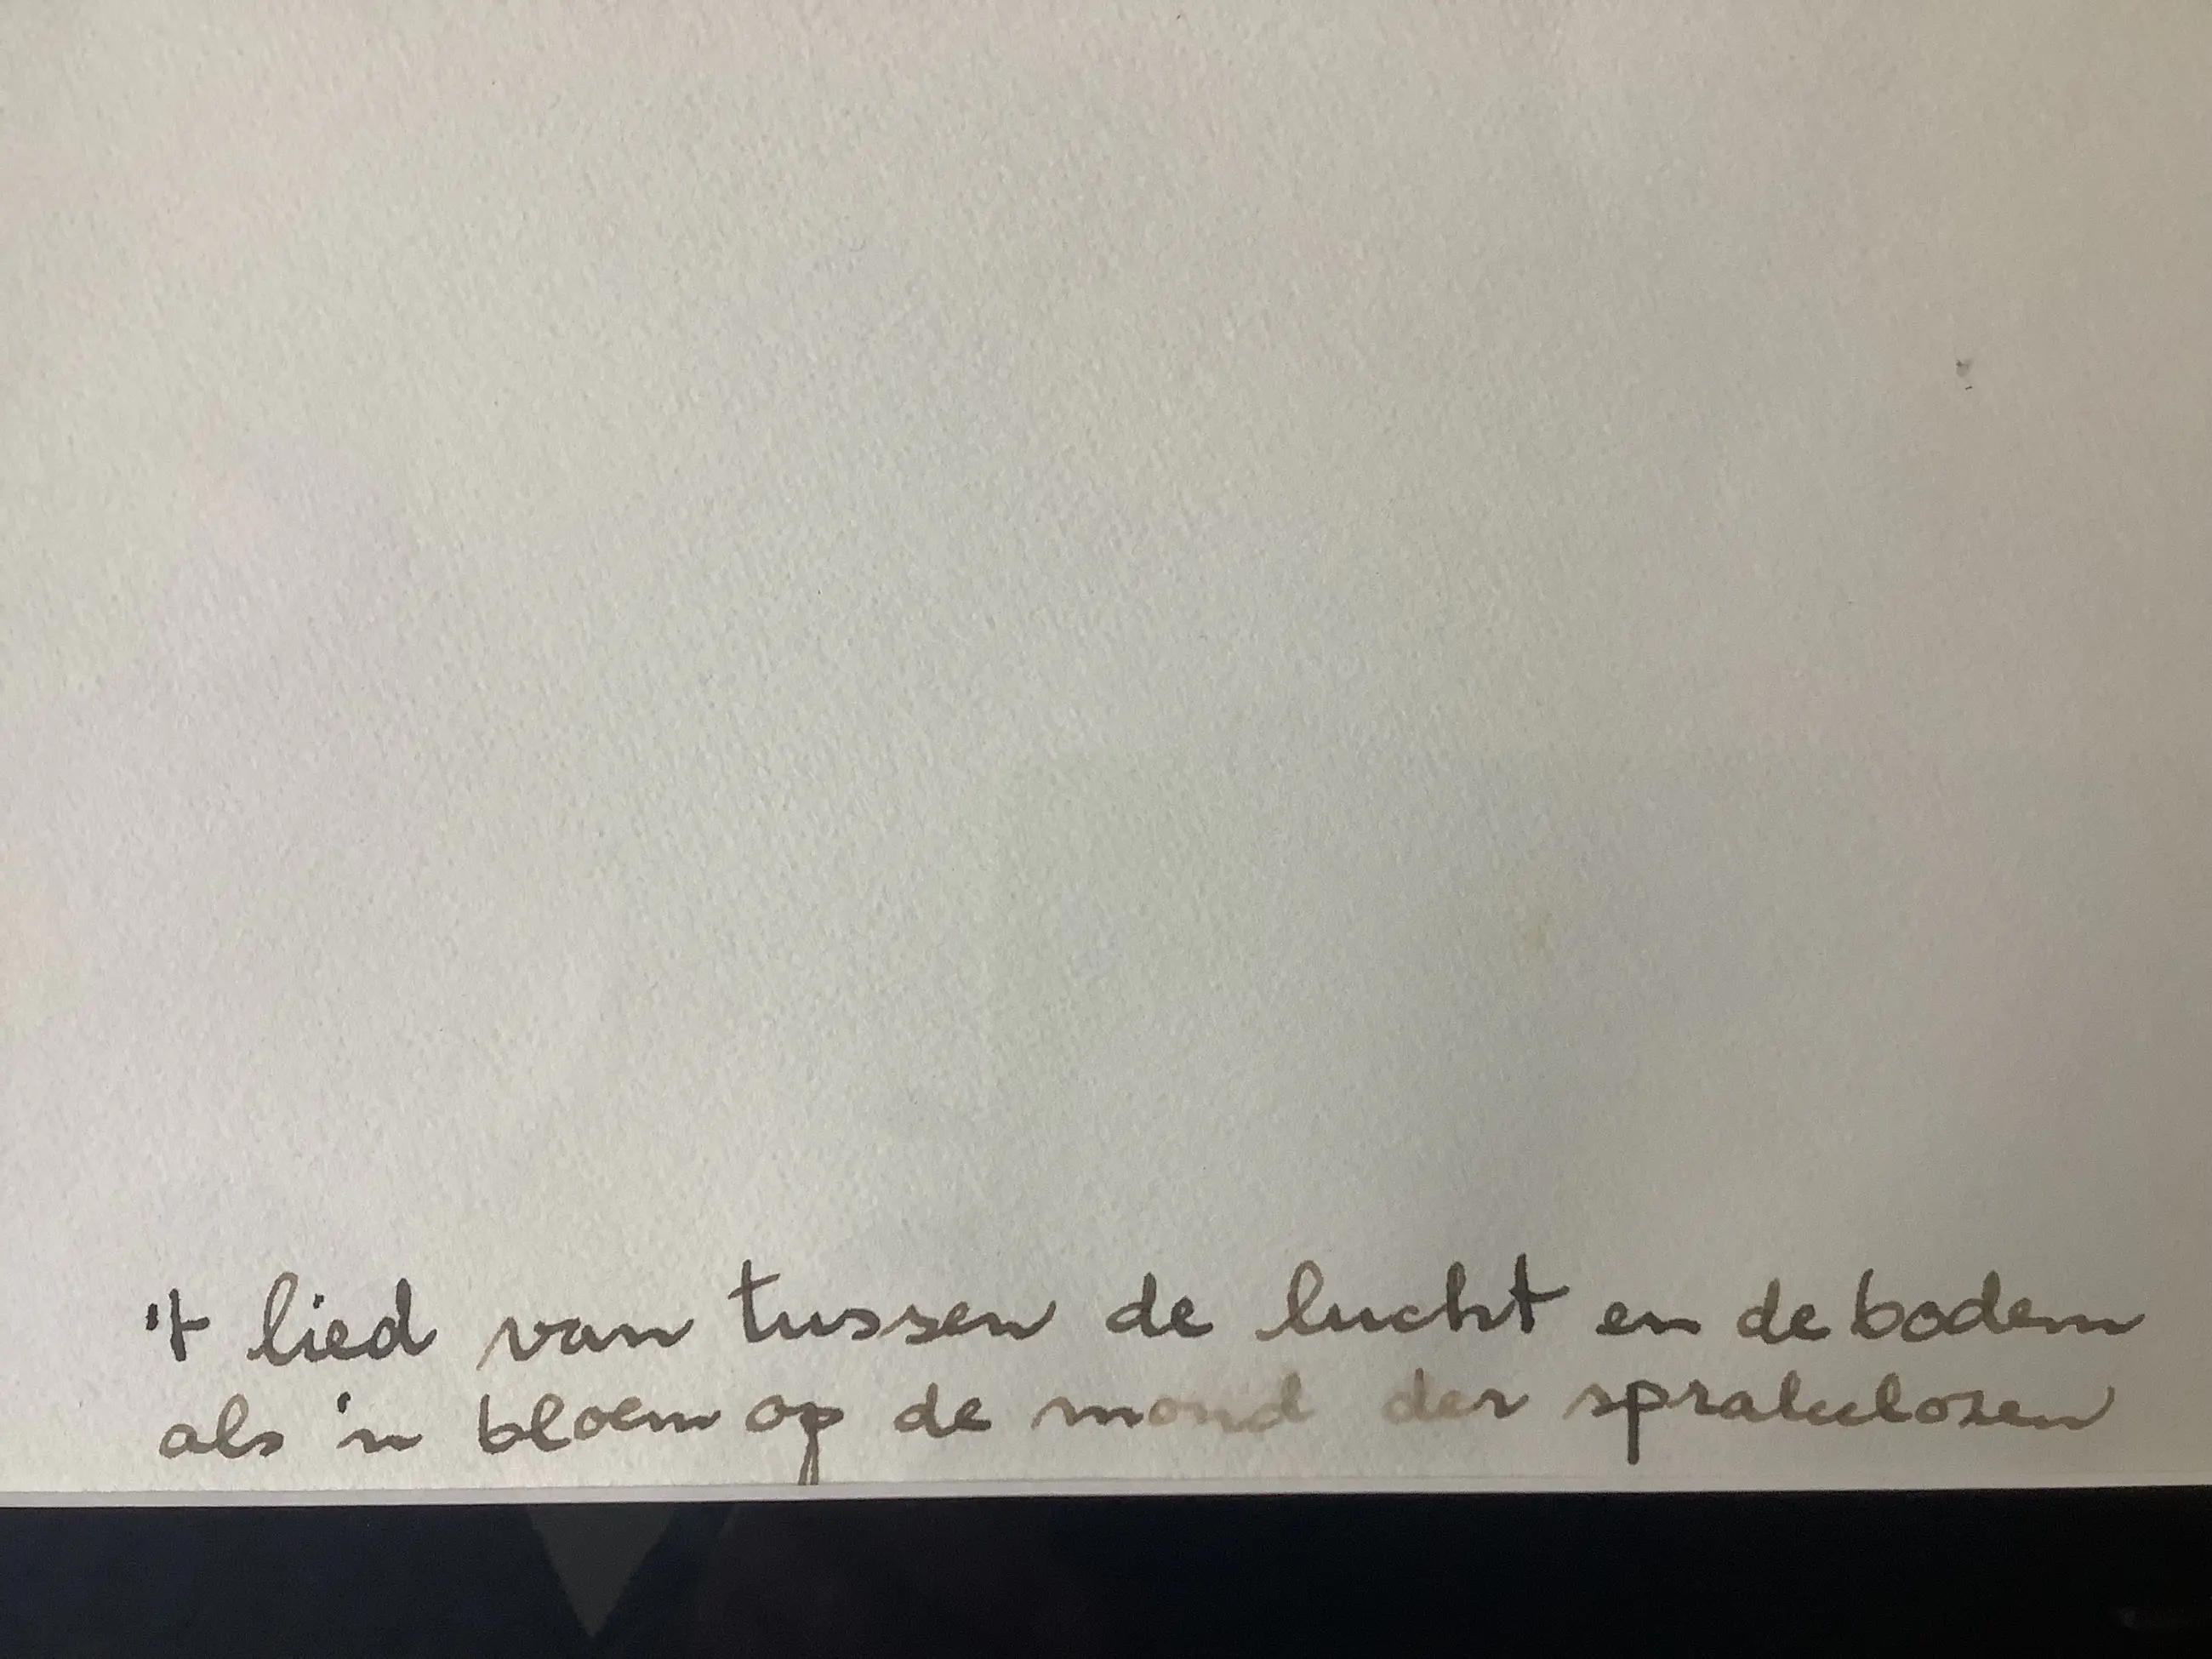 't lied van tussen de lucht en de bodem
als 'n bloem op de mond der sprakelozen